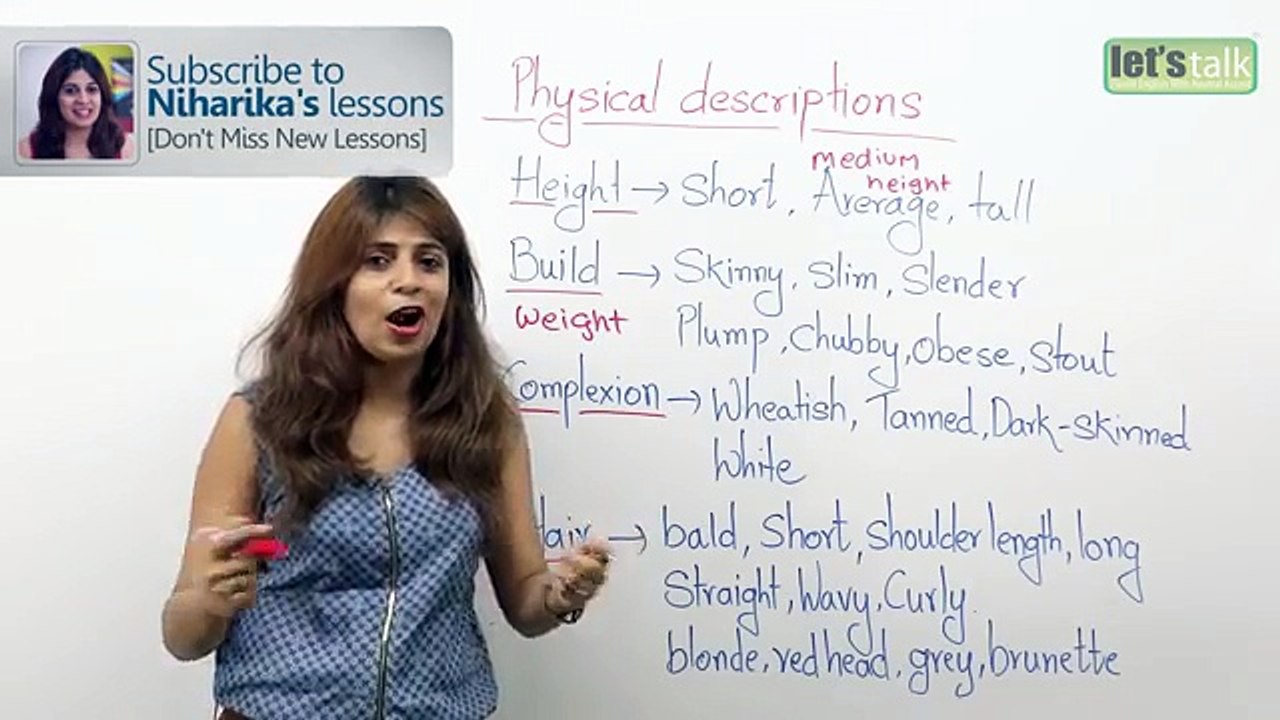 Subscribe to
Niharika's lessons
[Don't Miss New Lessons]
let's talk
Physical descriptions
medium
height
Height → Short, Average, tall
Build → Skinny, Slim, Slender
weight
Plump, Chubby, Obese, Stout
Complexion → Wheatish, Tanned, Dark-skinned
White
Hair → bald, Short, Shoulder length, long
Straight, Wavy, Curly.
blonde, red head, grey, brunette